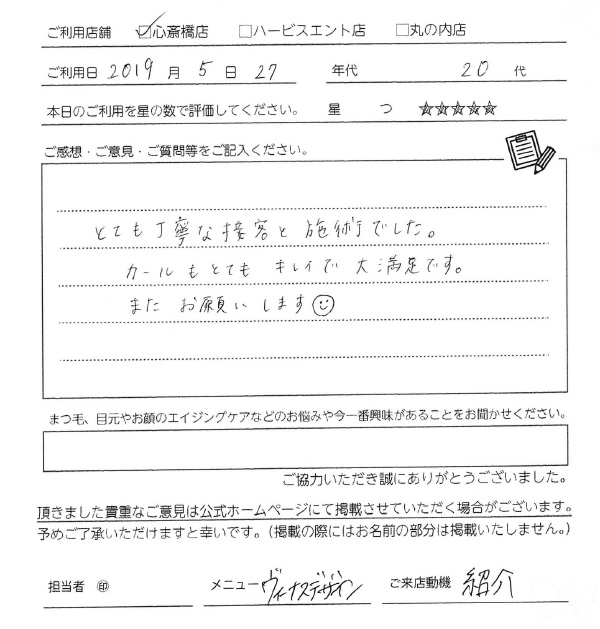 ご利用店舗 ☑心斎橋店 □ハービスエント店 □丸の内店
ご利用日 2019 月 5 日 27 年代 20 代
本日のご利用を星の数で評価してください。 星 つ ☆☆☆☆☆
ご感想・ご意見・ご質問等をご記入ください。
とても丁寧な接客と施術でした。
カールもとてもキレイで大満足です。
またお願いします☺
まつ毛、目元やお顔のエイジングケアなどのお悩みや今一番興味があることをお聞かせください。
ご協力いただき誠にありがとうございました。
頂きました貴重なご意見は公式ホームページにて掲載させていただく場合がございます。
予めご了承いただけますと幸いです。(掲載の際にはお名前の部分は掲載いたしません。)
担当者 ㊞ メニュー ヴィーナスデザイン ご来店動機 紹介